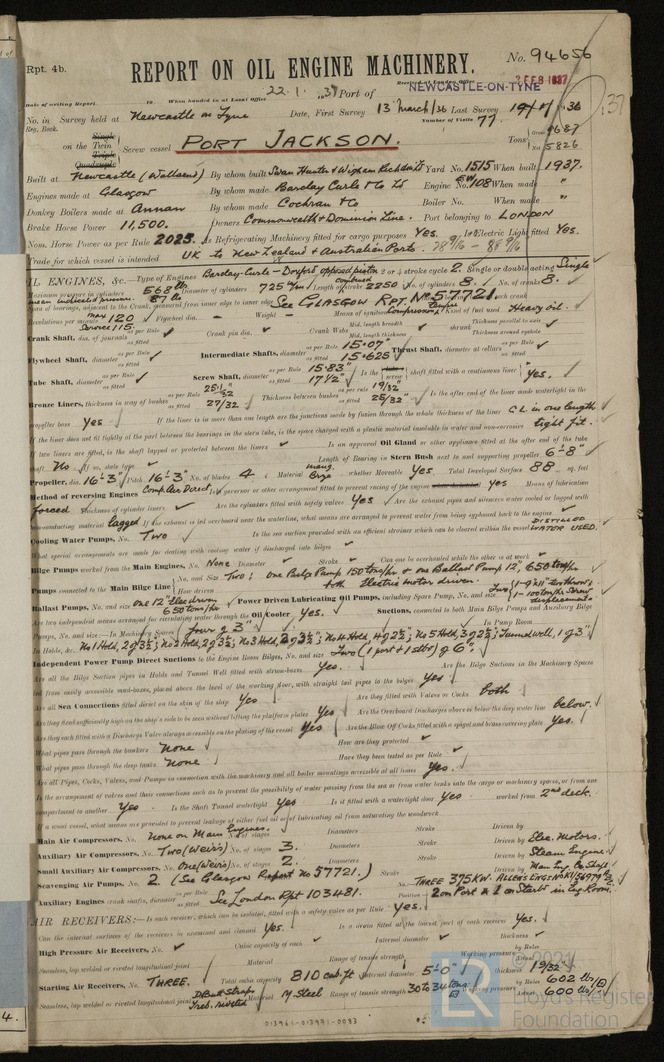 Rpt. 4b.
REPORT ON OIL ENGINE MACHINERY.
No. 94656
Received at London Office
2 FEB 1937
Date of writing Report 19 When handed in at Local Office 22.1.37 Port of NEWCASTLE-ON-TYNE
No. in Reg. Book. Survey held at Newcastle on Tyne Date, First Survey 13 March/36 Last Survey 19/1/36 37
Number of Visits 77
Single
on the Twin Screw vessel PORT JACKSON. Tons Gross 9687
Triple
Quadruple
Net 5826
Built at Newcastle (Wallsend) By whom built Swan Hunter & Wigham Richdsn Ld Yard No. 1515 When built 1937.
Engines made at Glasgow By whom made Barclay Curle & Co Ld Engine No. EW108 When made "
Donkey Boilers made at Annan By whom made Cochran & Co Boiler No. When made "
Brake Horse Power 11,500. Owners Commonwealth & Dominion Line. Port belonging to LONDON
Nom. Horse Power as per Rule 2025. Is Refrigerating Machinery fitted for cargo purposes Yes. Is Electric Light fitted Yes.
Trade for which vessel is intended UK to New Zealand & Australian Ports. 28 9/16 - 88 9/16
OIL ENGINES, &c.—Type of Engines Barclay-Curle - Doxford opposed piston 2 or 4 stroke cycle 2. Single or double acting Single
Maximum pressure in cylinders 568 lb Diameter of cylinders 725 m/m Length of stroke combined 2250 No. of cylinders 8. No. of cranks 8.
mean indicated pressure. 87 lb
See GLASGOW RPT. No 57721.
Revolutions per minute max 120 Service 115 Flywheel dia. Weight Means of ignition Compression Kind of fuel used Heavy oil.
Crank Shaft, dia. of journals as per Rule as fitted Crank pin dia. Crank Webs Mid. length breadth Mid. length thickness shrunk Thickness parallel to axis Thickness around eyehole
Flywheel Shaft, diameter as per Rule as fitted Intermediate Shafts, diameter as per Rule 15.07" as fitted 15.625 Thrust Shaft, diameter at collars as per Rule as fitted
Tube Shaft, diameter as per Rule as fitted Screw Shaft, diameter as per Rule 15.83" as fitted 17 1/2" Is the screw shaft fitted with a continuous liner Yes.
Bronze Liners, thickness in way of bushes as per Rule 25.1/32" as fitted 27/32 Thickness between bushes as per rule 19/32" as fitted 25/32" Is the after end of the liner made watertight in the
propeller boss Yes If the liner is in more than one length are the junctions made by fusion through the whole thickness of the liner C L in one length
If the liner does not fit tightly at the part between the bearings in the stern tube, is the space charged with a plastic material insoluble in water and non-corrosive tight fit.
If two liners are fitted, is the shaft lapped or protected between the liners Is an approved Oil Gland or other appliance fitted at the after end of the tube
shaft No If so, state type Length of Bearing in Stern Bush next to and supporting propeller 6'-8"
Propeller, dia. 16'-3" Pitch 16'-3" No. of blades 4 Material mang. Brze whether Moveable Yes Total Developed Surface 88 sq. feet
Method of reversing Engines Comp. Air Direct Is a governor or other arrangement fitted to prevent racing of the engine Yes Means of lubrication
forced Thickness of cylinder liners Are the cylinders fitted with safety valves Yes Are the exhaust pipes and silencers water cooled or lagged with
non-conducting material lagged If the exhaust is led overboard near the waterline, what means are arranged to prevent water from being syphoned back to the engine
Cooling Water Pumps, No. Two Is the sea suction provided with an efficient strainer which can be cleared within the vessel DISTILLED WATER USED.
What special arrangements are made for dealing with cooling water if discharged into bilges
Bilge Pumps worked from the Main Engines, No. None Diameter Stroke Can one be overhauled while the other is at work
Pumps connected to the Main Bilge Line No. and Size Two: one Bilge Pump 150 tons/hr & one Ballast Pump 12", 650 tons/hr
How driven both Electric motor driven.
Ballast Pumps, No. and size one 12" Elec driven 650 tons/hr Power Driven Lubricating Oil Pumps, including Spare Pump, No. and size
Are two independent means arranged for circulating water through the Oil Cooler Yes. Suctions, connected to both Main Bilge Pumps and Auxiliary Bilge
Pumps, No. and size:—In Machinery Spaces four of 3" In Pump Room
In Holds, &c. No 1 Hold, 2 of 3½"; No 2 Hold, 2 of 3½; No 3 Hold, 2 of 3½"; No 4 Hold, 4 of 2½"; No 5 Hold, 3 of 2½; Tunnel well, 1 of 3"
Independent Power Pump Direct Suctions to the Engine Room Bilges, No. and size Two (1 port & 1 stbd) of 6".
Are all the Bilge Suction pipes in Holds and Tunnel Well fitted with strum-boxes Yes. Are the Bilge Suctions in the Machinery Spaces
led from easily accessible mud-boxes, placed above the level of the working floor, with straight tail pipes to the bilges Yes
Are all Sea Connections fitted direct on the skin of the ship Yes Are they fitted with Valves or Cocks both
Are they fixed sufficiently high on the ship's side to be seen without lifting the platform plates Yes Are the Overboard Discharges above or below the deep water line below.
Are they each fitted with a Discharge Valve always accessible on the plating of the vessel Yes Are the Blow Off Cocks fitted with a spigot and brass covering plate Yes.
What pipes pass through the bunkers None How are they protected
What pipes pass through the deep tanks None Have they been tested as per Rule
Are all Pipes, Cocks, Valves, and Pumps in connection with the machinery and all boiler mountings accessible at all times Yes.
Is the arrangement of valves and their connections such as to prevent the possibility of water passing from the sea or from water tanks into the cargo or machinery spaces, or from one
compartment to another Yes Is the Shaft Tunnel watertight Yes Is it fitted with a watertight door Yes worked from 2nd deck.
If a wood vessel, what means are provided to prevent leakage of either fuel oil or of lubricating oil from saturating the woodwork
Main Air Compressors, No. None on Main Engines. No. of stages Diameters Stroke Driven by
Auxiliary Air Compressors, No. Two (Weirs) No. of stages 3. Diameters Stroke Driven by Elec. Motors.
Small Auxiliary Air Compressors, No. One (Weirs) No. of stages 2. Diameters Stroke Driven by Steam Engine.
Scavenging Air Pumps, No. 2. (See Glasgow Report No 57721.) Stroke Driven by Main Eng. Cr. Shaft
Auxiliary Engines crank shafts, diameter as per Rule as fitted See London Rpt 103481. Position THREE 375 KW. ALLEN'S ENGS No K1/56979
2 on Port & 1 on Starbd in Eng Room.
AIR RECEIVERS:—Is each receiver, which can be isolated, fitted with a safety valve as per Rule Yes.
Can the internal surfaces of the receivers be examined and cleaned Yes. Is a drain fitted at the lowest part of each receiver Yes.
High Pressure Air Receivers, No. Cubic capacity of each Internal diameter thickness
Seamless, lap welded or riveted longitudinal joint Material Range of tensile strength Working pressure by Rules
Starting Air Receivers, No. THREE. Total cubic capacity 810 cub. ft Internal diameter 5'-0" thickness 19/32"
Seamless, lap welded or riveted longitudinal joint D.Butt Straps Treb. riveted Material M. Steel Range of tensile strength 30 to 34 tons. Working pressure by Rules 602 lb/□ Actual 600 lb/□
© 2021
LR
Lloyd's Register
Foundation
013961-013971-0083